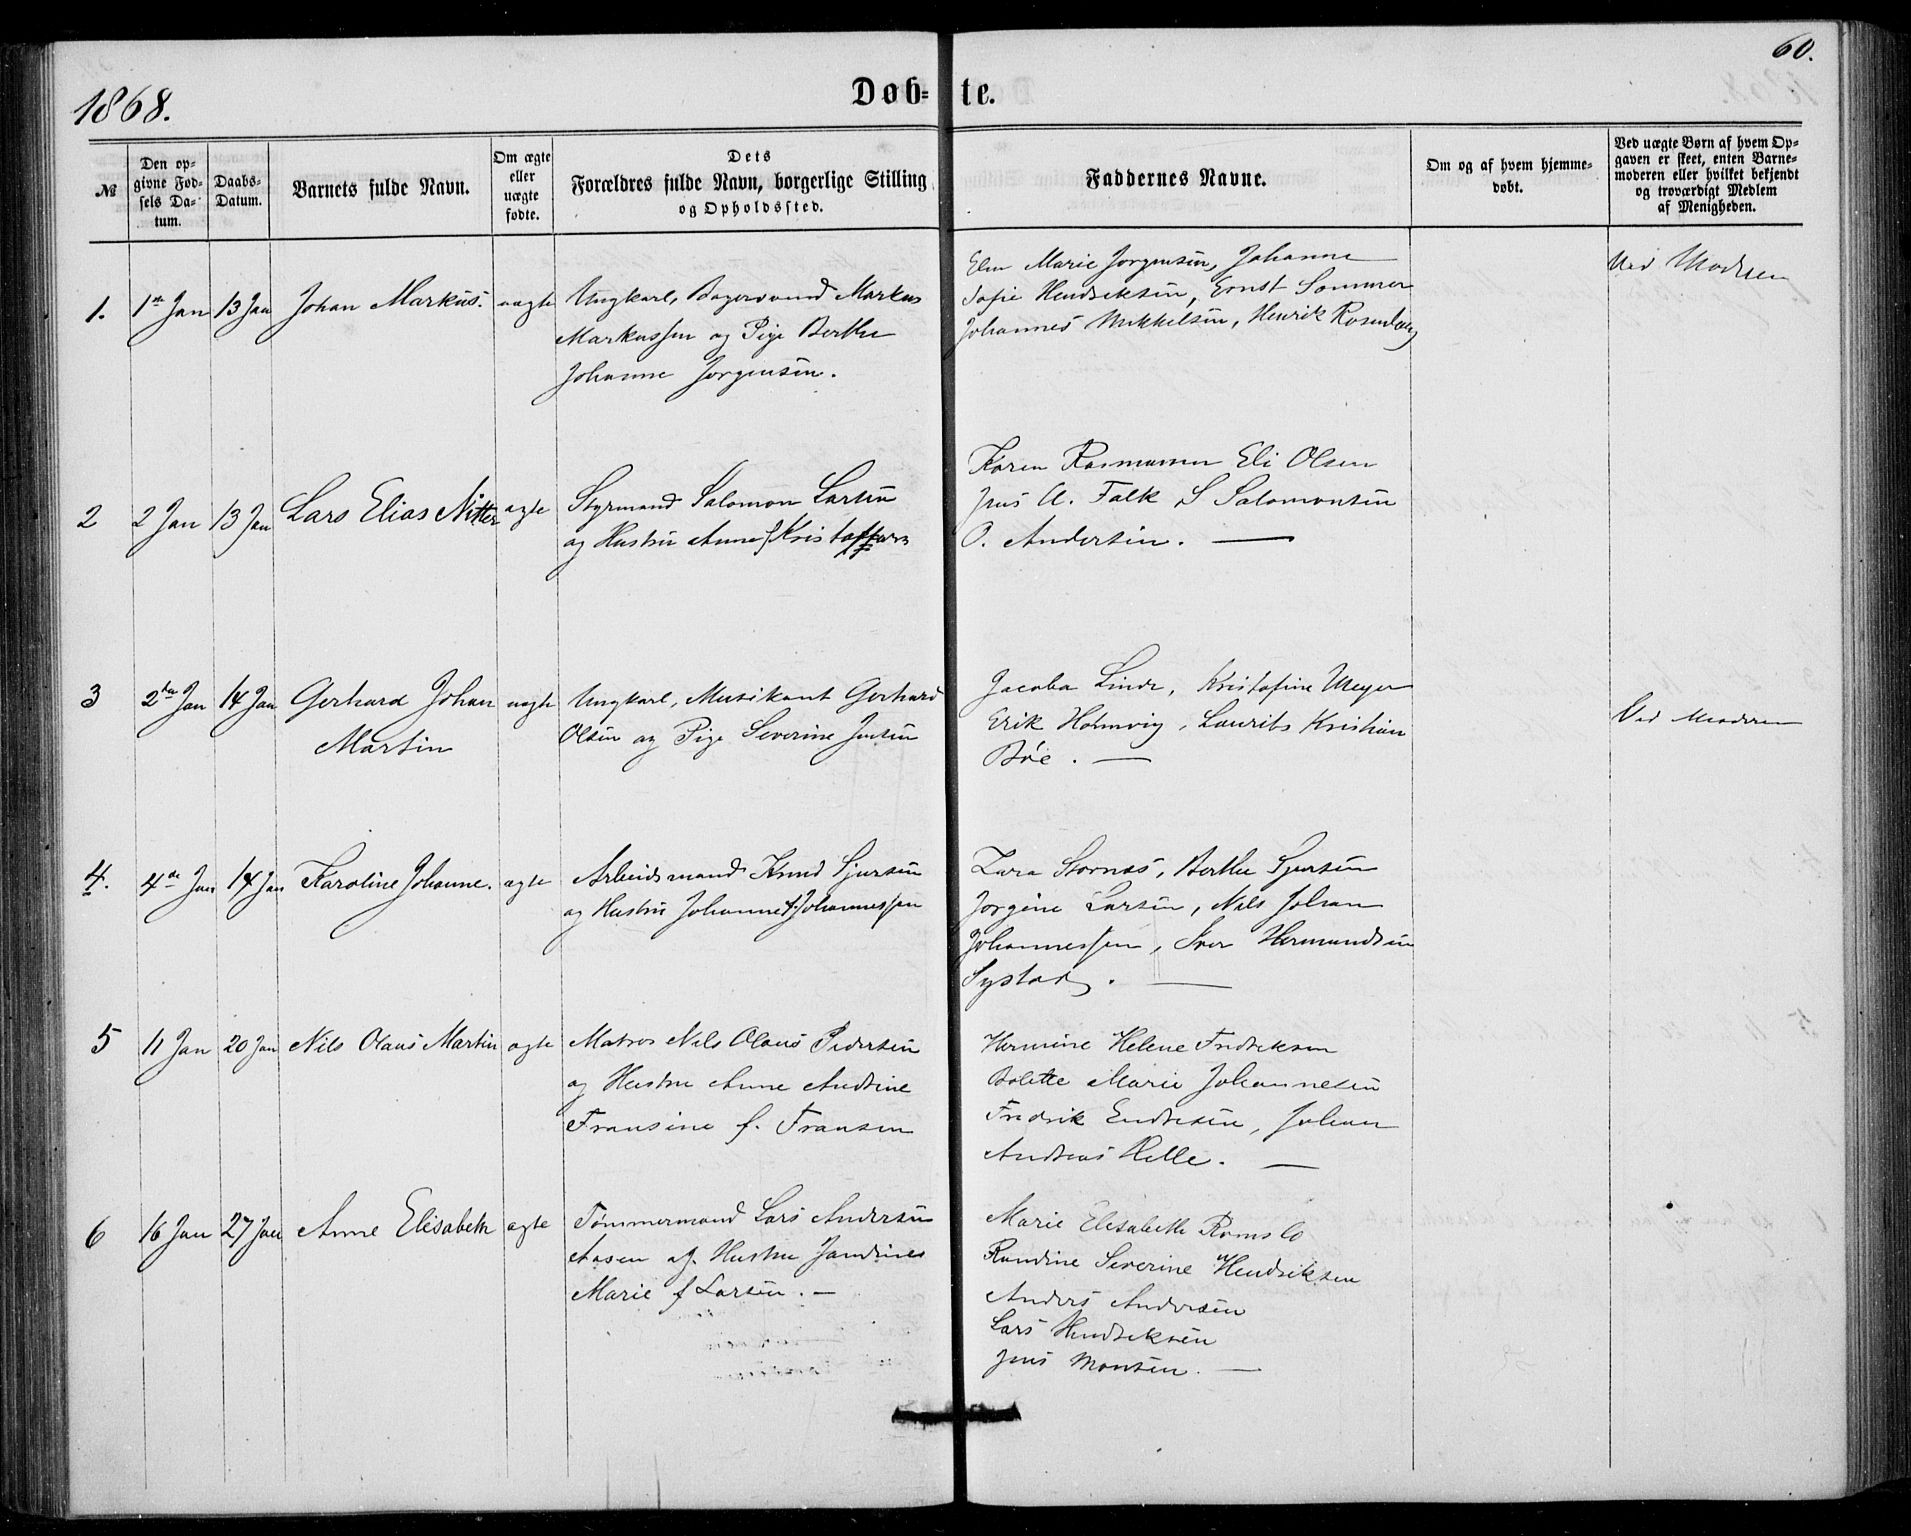 60.
1868.
Døb- te.
№
Den op-
givne Fød-
sels Da-
tum.
Daabs-
Datum.
Barnets fulde Navn.
Om ægte
eller
uægte
fødte.
Dets
Forældres fulde Navn, borgerlige Stilling
og Opholdssted.
Faddernes Navne.
Om og af hvem hjemme-
døbt.
Ved uægte Børn af hvem Op-
gaven er skeet, enten Barne-
moderen eller hvilket bekjendt
og troværdigt Medlem
af Menigheden.
1. 1ste Jan 13 Jan Johan Markus. uægte
Ungkarl, Bagersvend Markus
Markussen og Pige Berthe
Johanne Jørgensen.
Elen Marie Jørgensen, Johanne
Sofie Hendriksen, Ernst Sommer
Johannes Mikkelsen, Henrik Rosenberg
Ved Moderen
2 2 Jan 13 Jan Lars Elias Nitter ægte
Styrmand Salomon Larsen
og Hustru Anne f Kristoffers
Karen Rasmussen Eli Olsen
Jens A. Falk S Salomonsen
O. Andersen.
3 2den Jan 14 Jan Gerhard Johan
Martin
uægte
Ungkarl, Musikant Gerhard
Olsen og Pige Severine Jensen
Jacoba Linde, Kristofine Meyer
Erik Holmvig, Laurits Kristian
Bøe.
Ved Moderen
4. 4de Jan 14 Jan Karoline Johanne. ægte
Arbeidsmand Knud Sjursen
og Hustru Johanne f. Johannessen
Lara Stornæs, Berthe Sjursen
Jørgine Larsen, Nils Johan
Johannessen, Iver Hermundsen
Systad.
5 11 Jan 20 Jan Nils Olaus Martin ægte
Matros Nils Olaus Pedersen
og Hustru Anne Andrine
Fransine f. Fransen
Hermine Helene Fredriksen
Bolette Marie Johannesen
Fredrik Endresen, Johan
Andreas Helle.
6 16 Jan 27 Jan Anne Elisabeth ægte
Tømmermand Lars Andersen
Aasen og Hustru Jandine
Marie f Larsen.
Marie Elisabeth Romslo
Randine Severine Hendriksen
Anders Andersen
Lars Hendriksen
Jens Monsen.